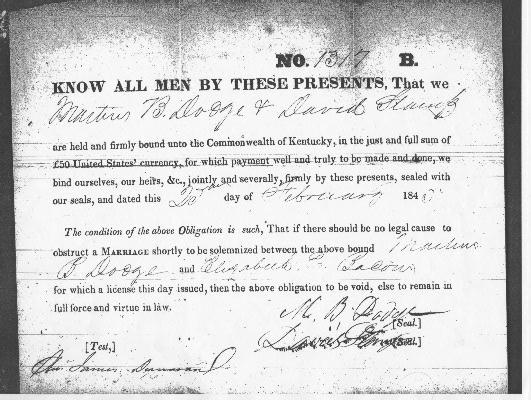 NO. 1317 B.
KNOW ALL MEN BY THESE PRESENTS, That we
Martius B. Dodge & David
are held and firmly bound unto the Commonwealth of Kentucky, in the just and full sum of
£50 United States' currency, for which payment well and truly to be made and done, we
bind ourselves, our heirs, &c., jointly and severally, firmly by these presents, sealed with
our seals, and dated this day of February 184
The condition of the above Obligation is such, That if there should be no legal cause to
obstruct a MARRIAGE shortly to be solemnized between the above bound Martius
B Dodge and Elizabeth Bacon
for which a license this day issued, then the above obligation to be void, else to remain in
full force and virtue in law.
M. B. Dodge
[Seal.]
David [Seal.]
[Test,]
James